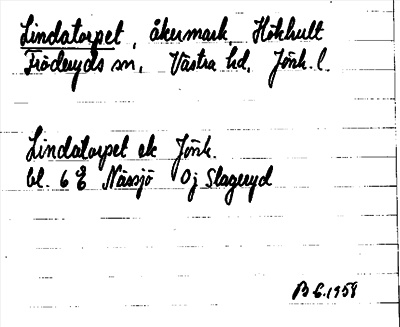 Lindatorpet, åkermark, Hökhult
Fröderyds sn, Västra hd, Jönk. l.
Lindatorpet ek Jönk.
bl. 6 E Nässjö Oj Slageryd
B G. 1958